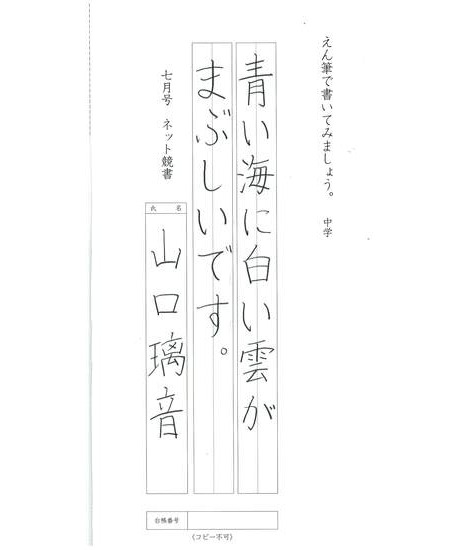 えん筆で書いてみましょう。 中学
青い海に白い雲が
まぶしいです。
七月号 ネット競書
氏名
山口璃音
台帳番号
《コピー不可》